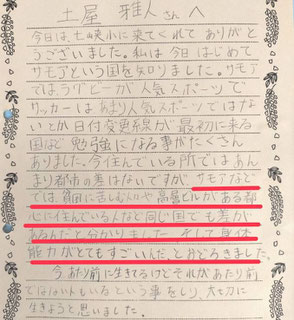 土屋 雅人さんへ
今日は七の東小に来てくれてありがと
うございました。私は今日はじめて
サモアという国を知りました。サモア
ではラグビーが人気スポーツで
サッカーはあまり人気スポーツではな
いとか日付変更線が最初に来る
国など勉強になる事がたくさん
ありました。今住んでいる所ではあん
まり都市の差はないですが、サモアなど
では、貧困に苦しむ人や高層ビルがある都
心に住んでいる人など同じ国でも差が
あるんだと分かりました。そして身体
能力がとてもすごいんだとおどろきました。
今あたり前に生きてるけどそれがあたり前
ではない人もいるという事をしり、大切に
生きようと思いました。